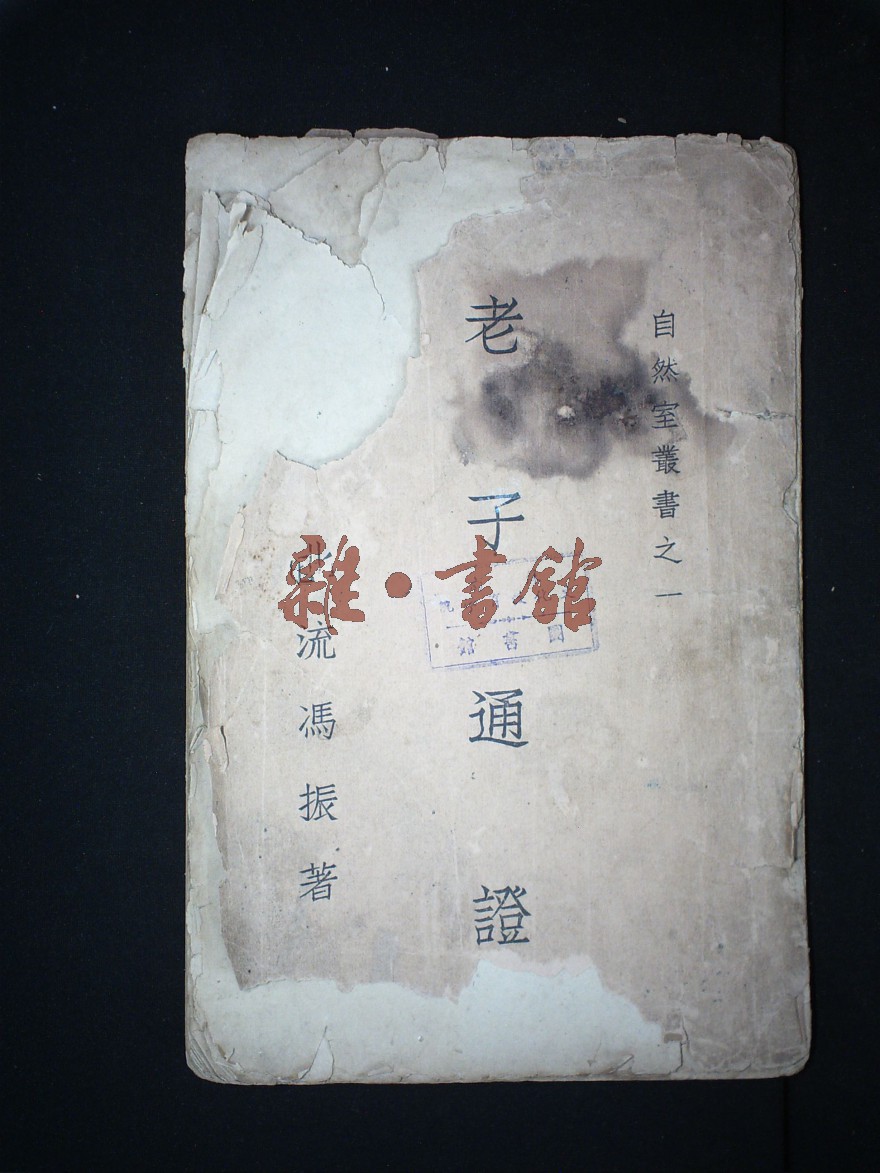 自然室叢書之一
老子通證
北流馮振著
雜·書館
圖書館